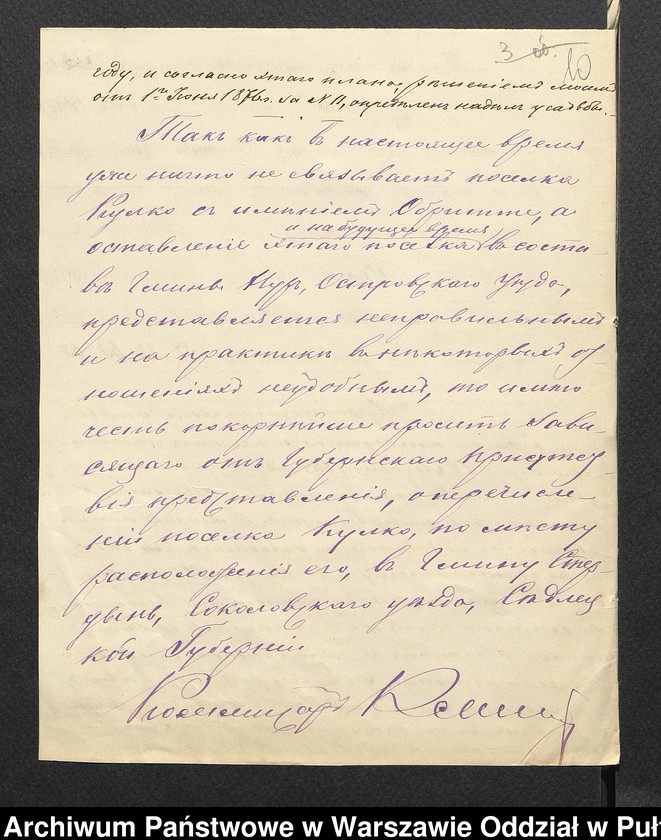 3 об. 10
году, и согласно этаго плана, рѣшеніемъ моимъ
отъ 1го Іюня 1876 г. за № 11, опредѣленъ надѣлъ усадьбы.
Такъ какъ въ настоящее время
уже ничто не связываетъ поселка
Кулко съ имѣніемъ Обрытте, а
и на будущее время
оставленіе этаго поселка въ соста-
вѣ Гмины Нуръ, Островскаго Уѣзда,
представляется неправильнымъ
и на практикѣ въ нѣкоторыхъ от-
ношеніяхъ неудобнымъ, то имѣю
честь покорнѣйше просить зави-
сящаго отъ Губернскаго Присутст-
вія представленія, о перечисле-
ніи поселка Кулко, по мѣсту
расположенія его, въ Гмину Стер-
дынь, Соколовскаго уѣзда, Сѣдлец-
кой Губерніи.
Коммисаръ
Archiwum Państwowe w Warszawie Oddział w Puł